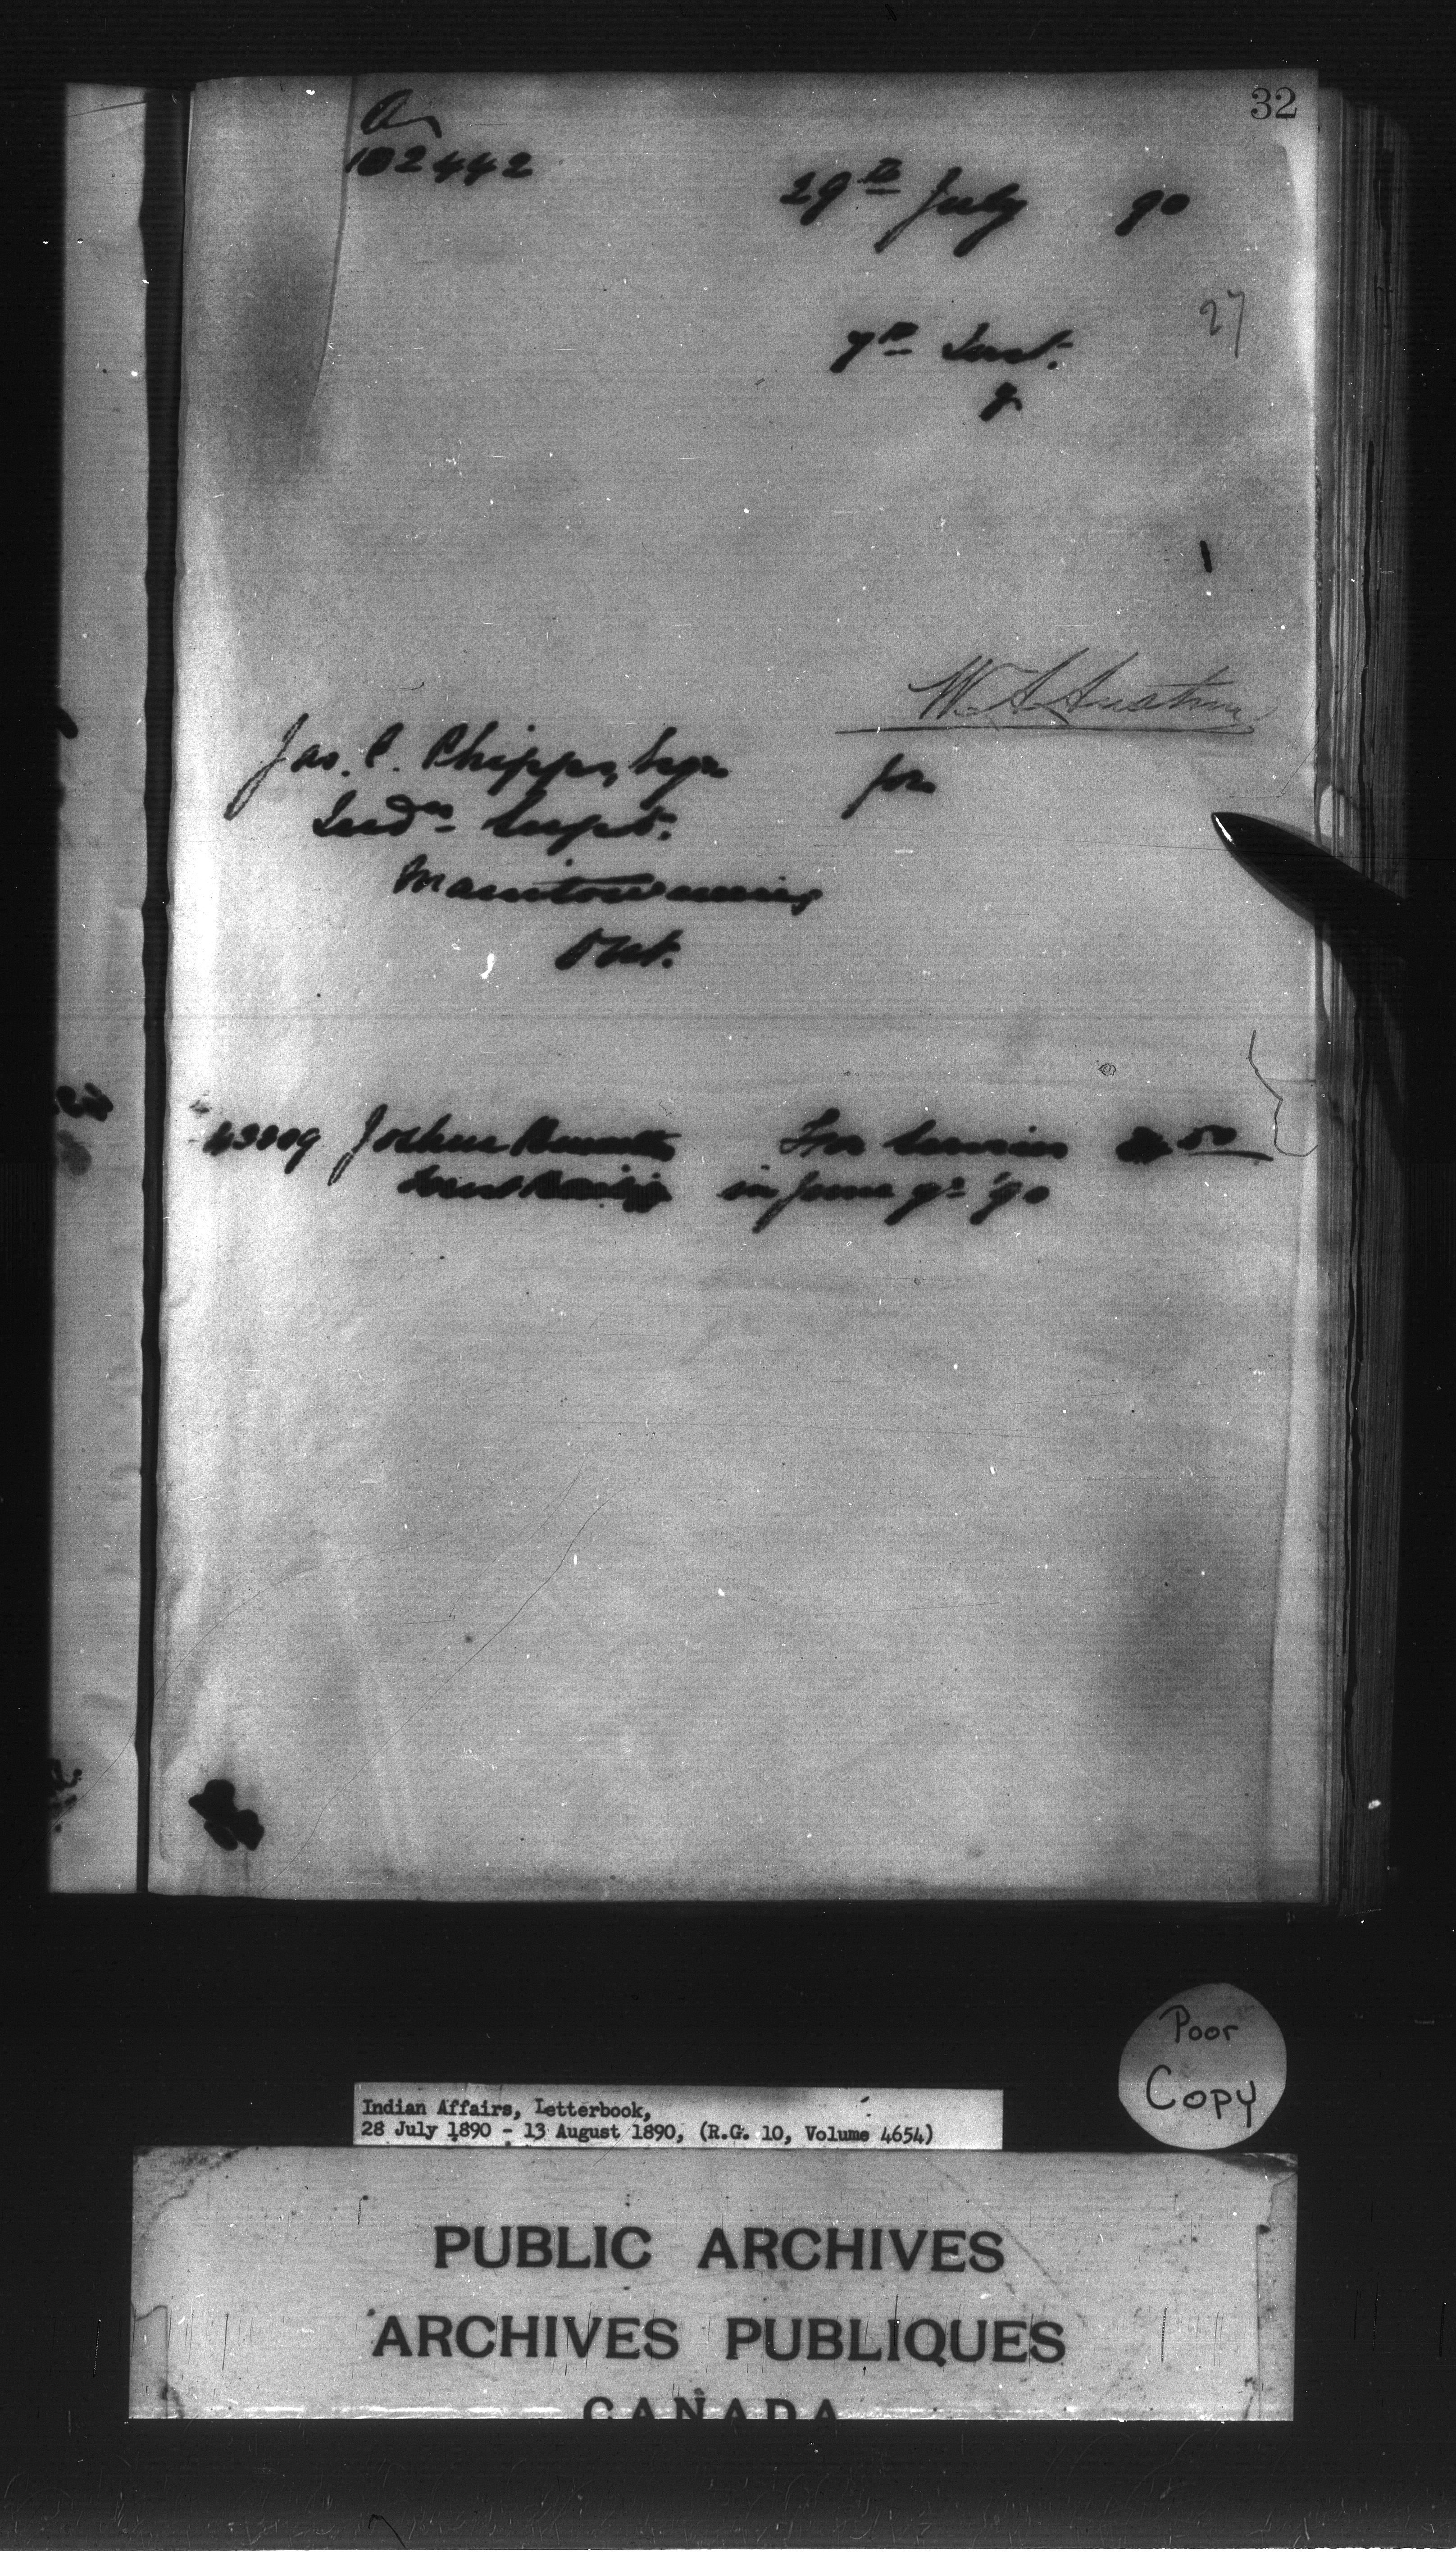 32
102442
29th July 90
27
7th Inst.
W. A. Austin
Jas. C. Phipps, Esqre
for
Indn. Supt.
Manitowaning
Ont.
Joshua For Services 50
in June qr '90
Poor
Copy
Indian Affairs, Letterbook,
28 July 1890 - 13 August 1890, (R.G. 10, Volume 4654)
PUBLIC ARCHIVES
ARCHIVES PUBLIQUES
CANADA